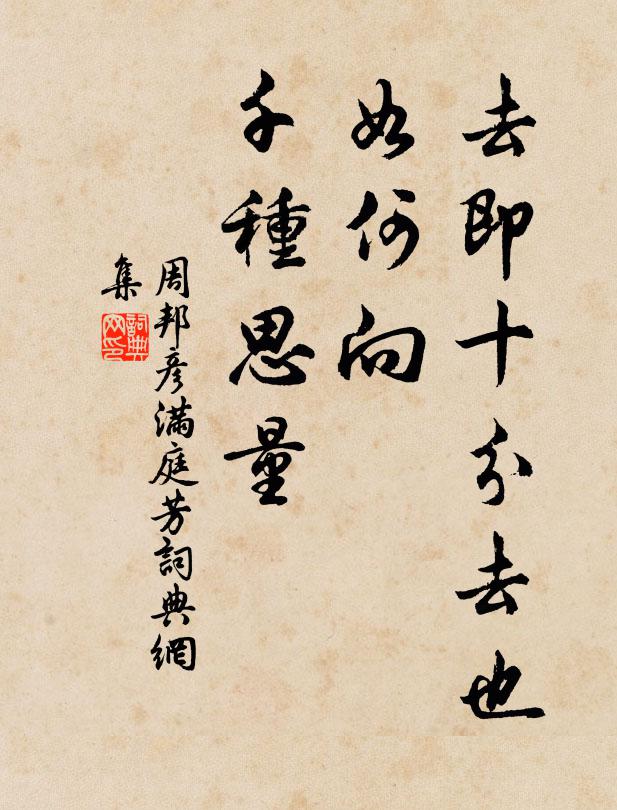 去即十分去也
如何向
千種思量
周邦彦滿庭芳詞典網
集
詞典
网印